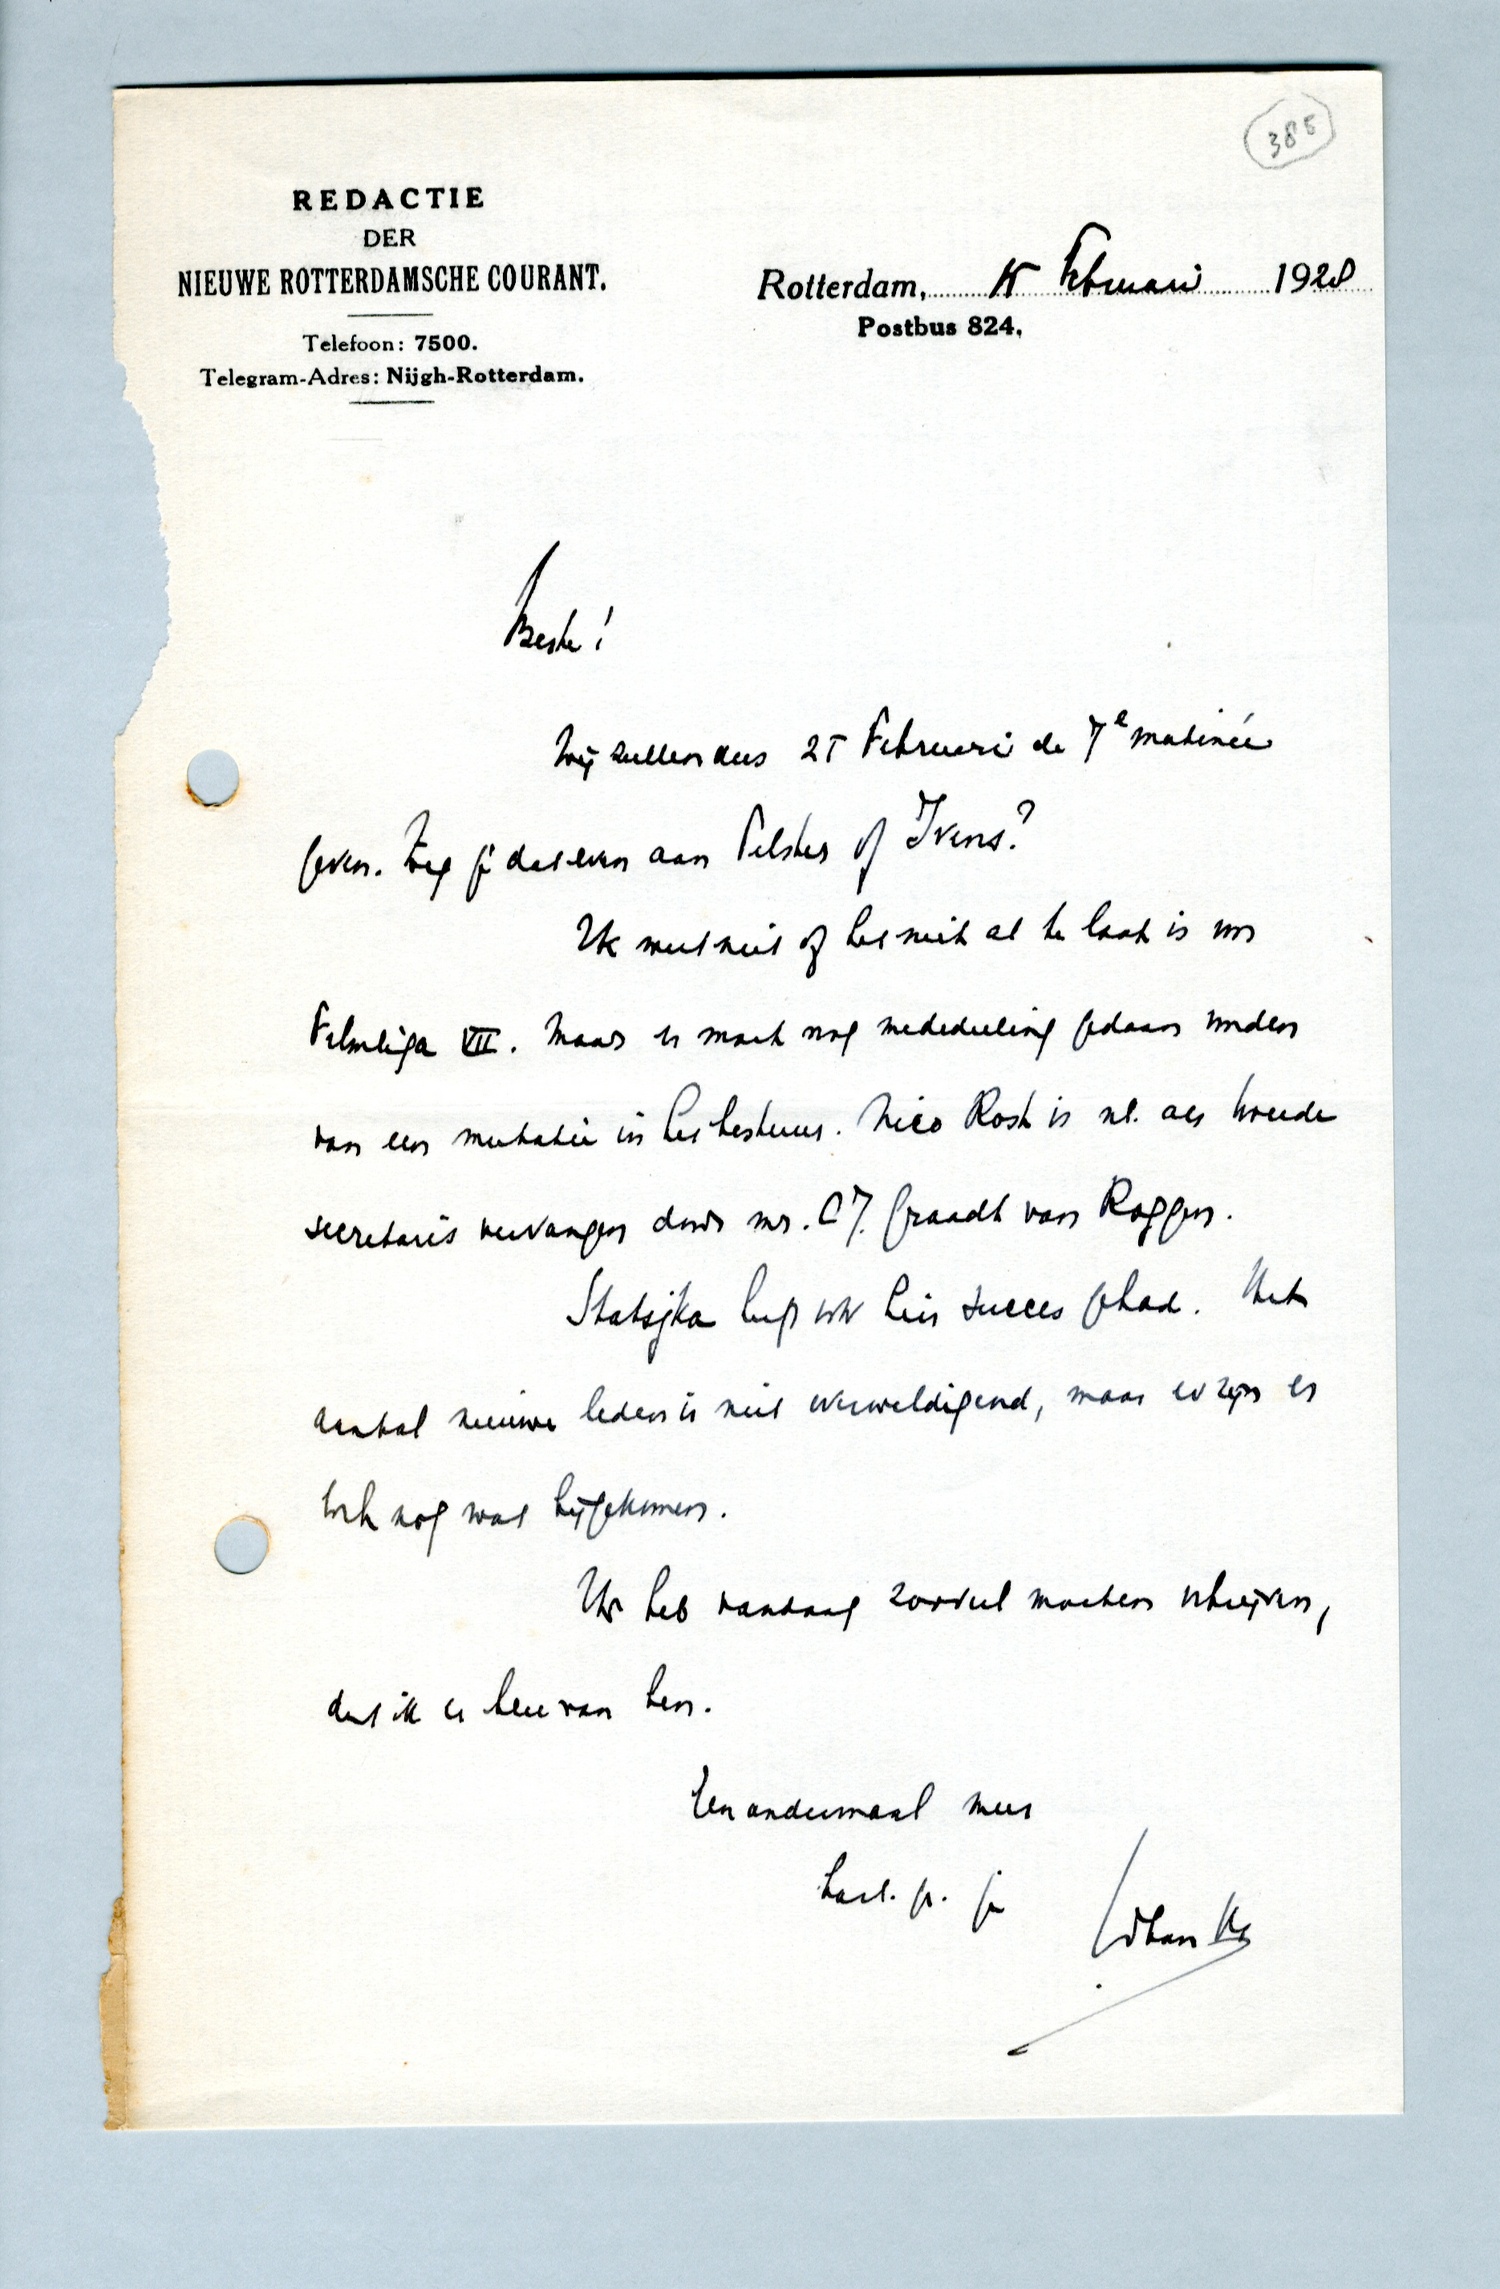 385
REDACTIE
DER
NIEUWE ROTTERDAMSCHE COURANT.
Telefoon: 7500.
Telegram-Adres: Nijgh-Rotterdam.
Rotterdam, 15 Februari 1928
Postbus 824.
Beste!
Wij zullen dus 25 Februari de 7e matinée
geven. Zeg je dat even aan Pelster of Ivens?
Ik weet niet of het niet al te laat is voor
Filmliga VII. Maar er moet nog mededeeling gedaan worden
van een mutatie in het bestuur. Nico Rost is nl. als tweede
secretaris vervangen door mr. C.J. Graadt van Roggen.
Statsjka heeft ook hier succes gehad. Het
aantal nieuwe leden is niet overweldigend, maar er zijn er
toch nog wat bijgekomen.
Ik heb vandaag zooveel moeten schrijven,
dat ik er beu van ben.
Een andermaal meer
hart. gr. je
Johan